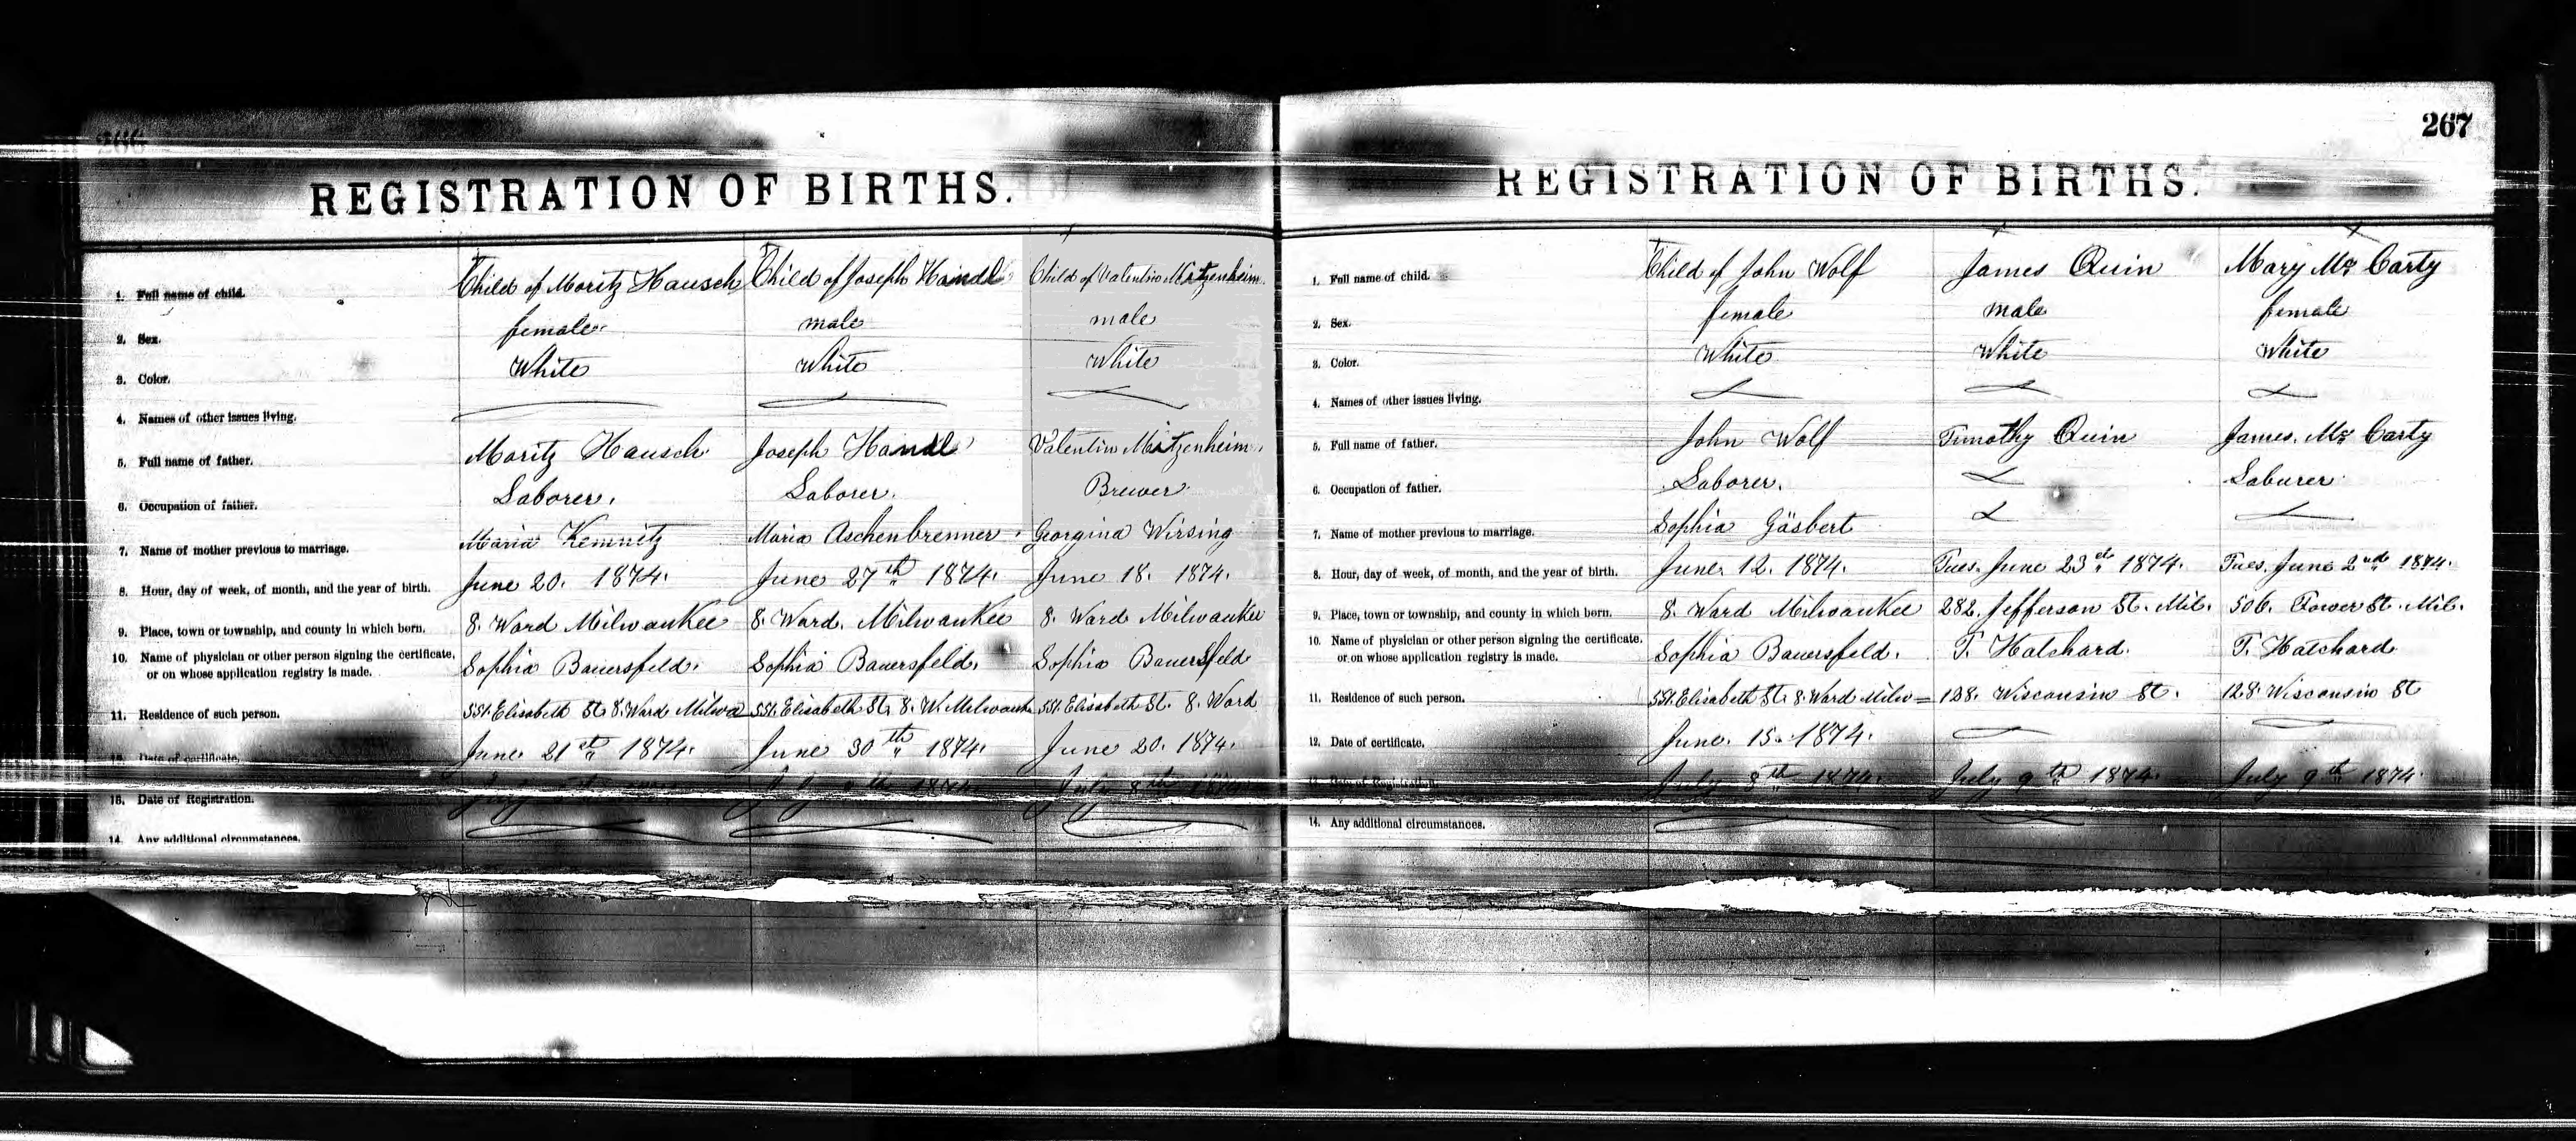 267
REGISTRATION OF BIRTHS.
1. Full name of child. Child of Moritz Hausch Child of Joseph Handl Child of Valentin Mitzenheim
2. Sex. female male male
3. Color. White White White
4. Names of other issues living.
5. Full name of father. Moritz Hausch. Joseph Handl Valentin Mitzenheim
6. Occupation of father. Laborer. Laborer. Brewer
7. Name of mother previous to marriage. Maria Kemnitz Maria Aschenbrenner Georgina Wirsing
8. Hour, day of week, of month, and the year of birth. June 20. 1874. June 27th 1874. June 18. 1874.
9. Place, town or township, and county in which born. 8. Ward Milwaukee 8. Ward. Milwaukee 8. Ward Milwaukee
10. Name of physician or other person signing the certificate, or on whose application registry is made. Sophia Bauersfeld. Sophia Bauersfeld. Sophia Bauersfeld
11. Residence of such person. 551. Elisabeth St. 8. Ward Milwa 551. Elisabeth St. 8. W. Milwauk 551. Elisabeth St. 8. Ward
12. Date of certificate. June 21st 1874. June 30th 1874. June 20. 1874.
13. Date of Registration. July 8th 1874
14. Any additional circumstances.
REGISTRATION OF BIRTHS.
1. Full name of child. Child of John Wolf James Quin Mary Mc Carty
2. Sex. female male female
3. Color. White White White
4. Names of other issues living.
5. Full name of father. John Wolf Timothy Quin James. Mc Carty
6. Occupation of father. Laborer. Laburer
7. Name of mother previous to marriage. Sophia Gäsbert
8. Hour, day of week, of month, and the year of birth. June 12. 1874. Tues. June 23d 1874. Tues. June 2nd 1874.
9. Place, town or township, and county in which born. 8. Ward Milwaukee 282. Jefferson St. Mil. 506. Tower St. Mil.
10. Name of physician or other person signing the certificate, or on whose application registry is made. Sophia Bauersfeld. T. Hatchard. T. Hatchard
11. Residence of such person. 551. Elisabeth St. 8. Ward Milw= 128. Wisconsin St. 128. Wisconsin St
12. Date of certificate. June. 15. 1874.
13. Date of Registration. July 8th 1874. July 9th 1874. July 9th 1874
14. Any additional circumstances.